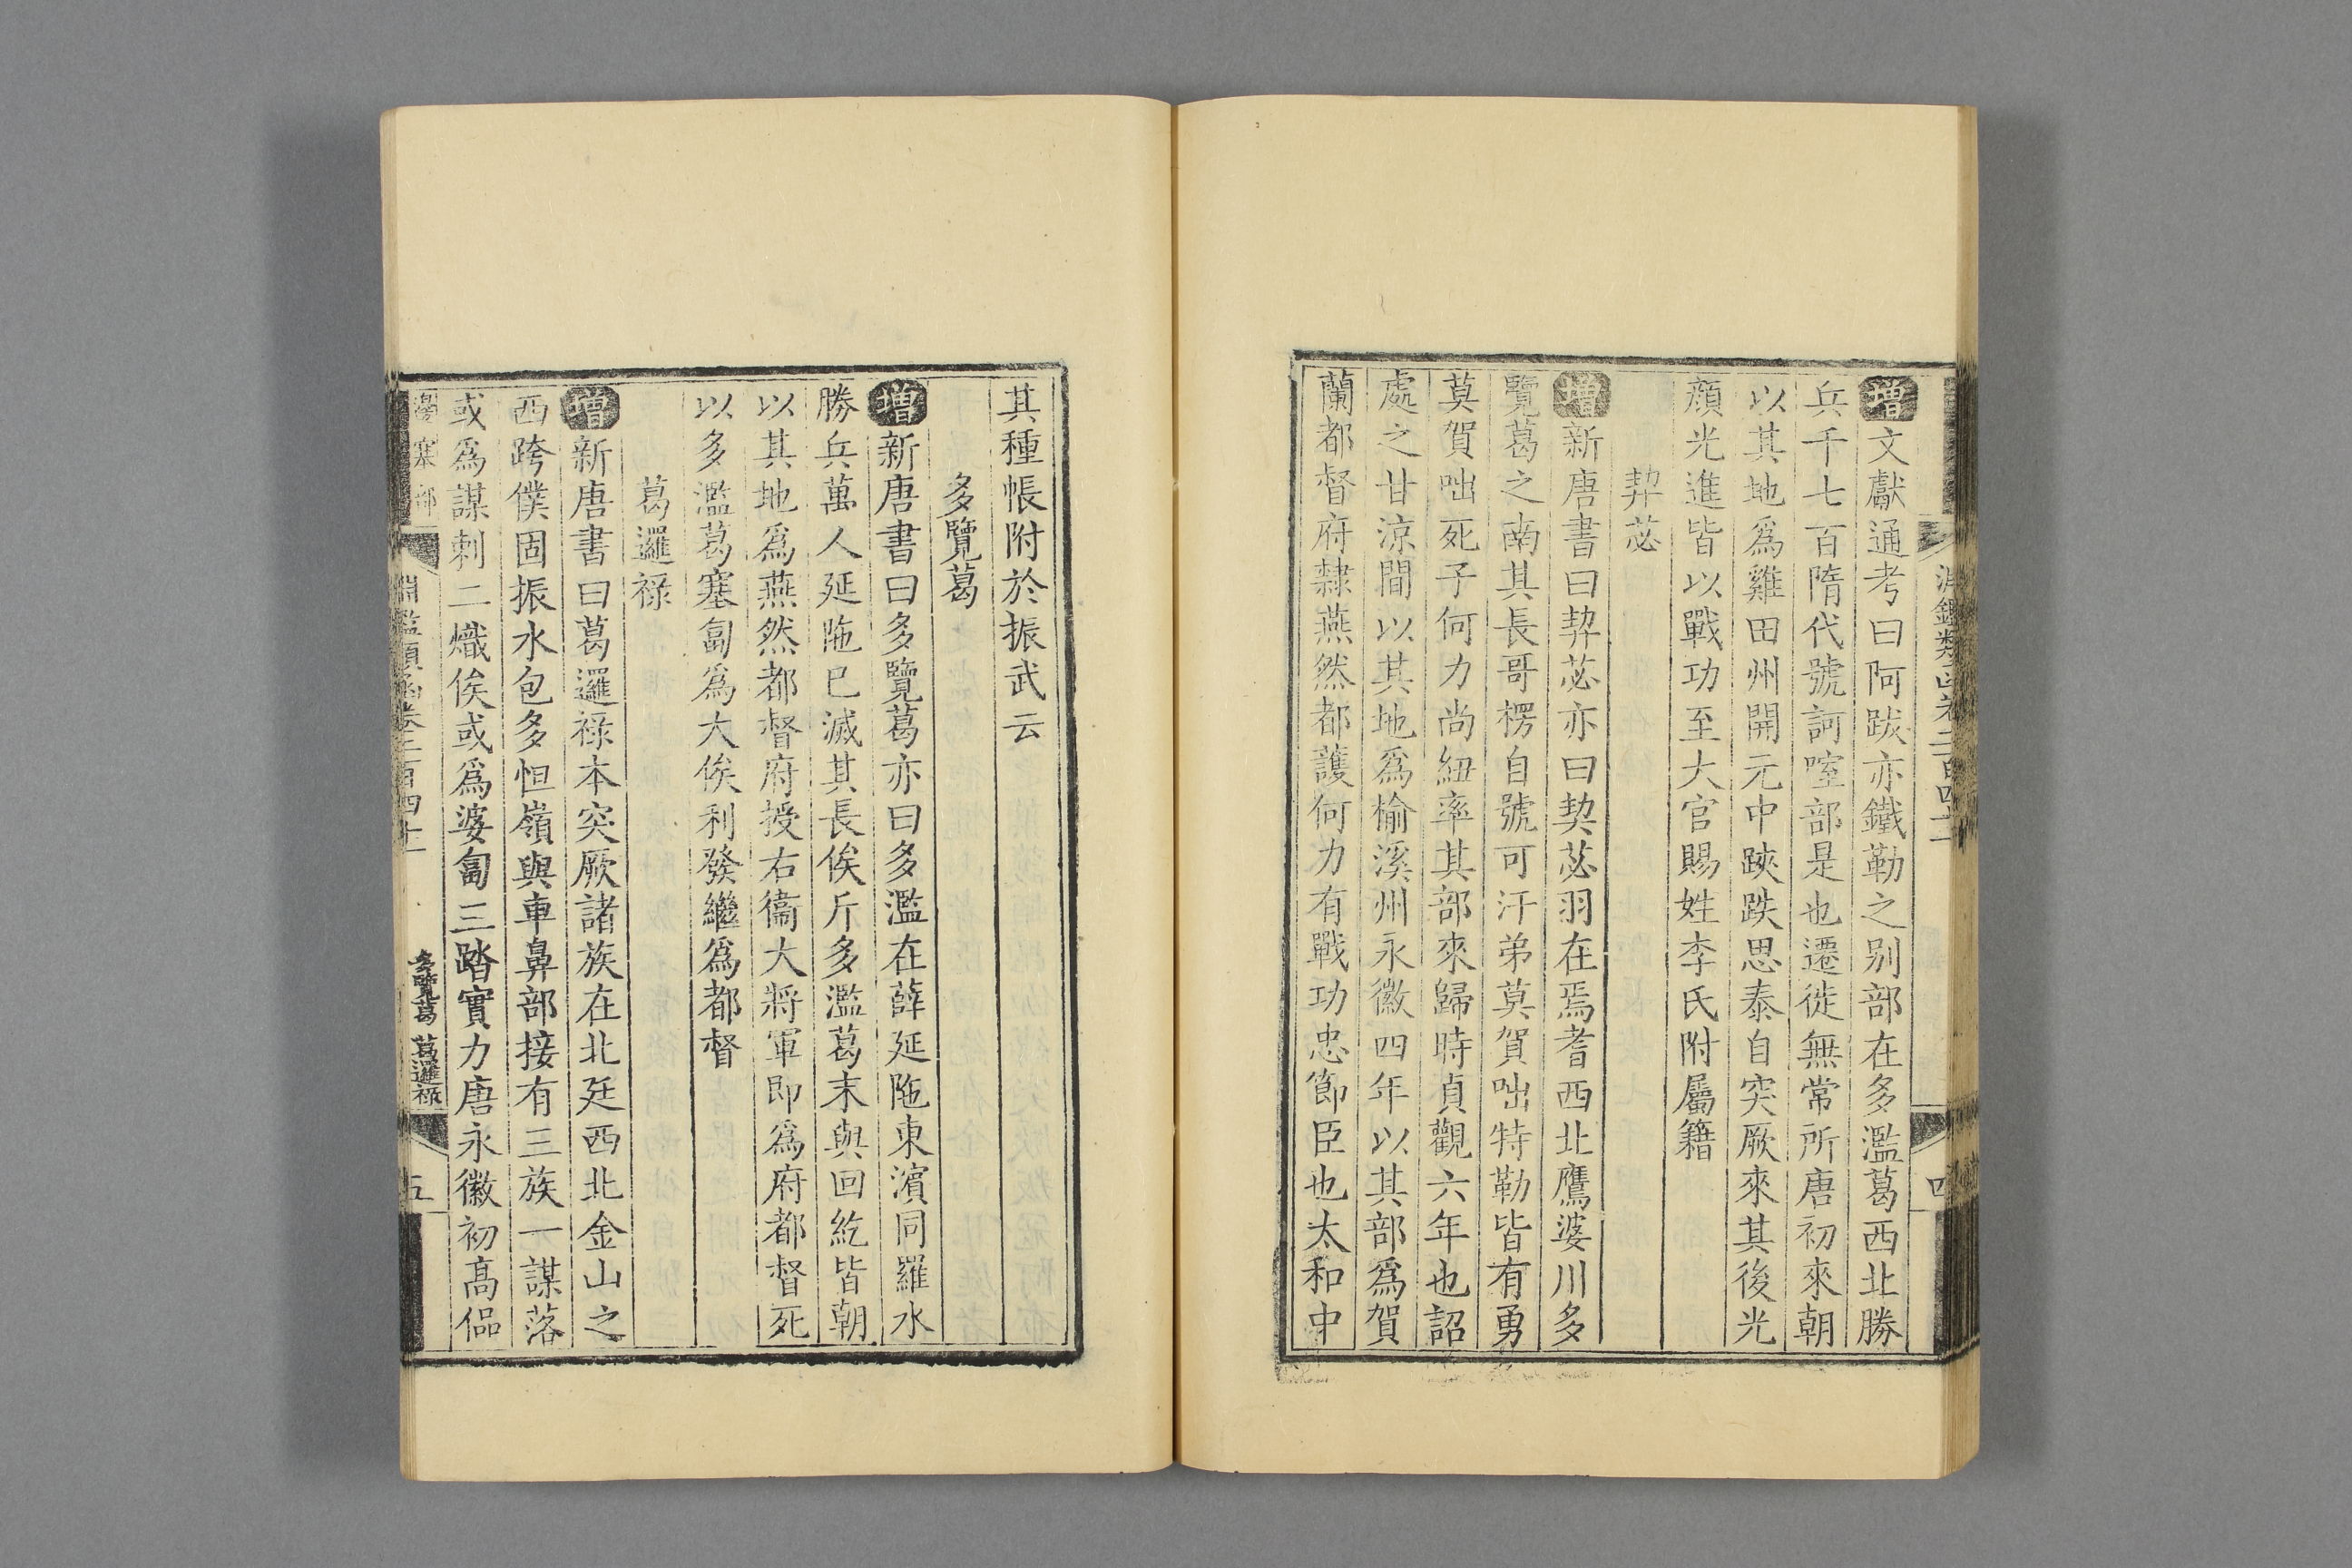 淵鑑類函卷二百四十二
四
增文獻通考曰阿跋亦鐵勒之别部在多濫葛西北勝
兵千七百隋代號訶咥部是也遷徙無常所唐初來朝
以其地爲雞田州開元中𨁂跌思泰自突厥來其後光
顔光進皆以戰功至大官賜姓李氏附屬籍
契苾
增新唐書曰契苾亦曰契苾羽在焉耆西北鷹婆川多
覽葛之南其長哥楞自號可汗弟莫賀咄特勒皆有勇
莫賀咄死子何力尚紐率其部來歸時貞觀六年也詔
處之甘涼間以其地爲榆溪州永徽四年以其部爲賀
蘭都督府隸燕然都護何力有戰功忠節臣也太和中
其種帳附於振武云
多覽葛
增新唐書曰多覽葛亦曰多濫在薛延陁東濱同羅水
勝兵萬人延陁已滅其長俟斤多濫葛末與回紇皆朝
以其地爲燕然都督府授右衞大將軍即爲府都督死
以多濫葛塞匐爲大俟利發繼爲都督
葛邏祿
增新唐書曰葛邏祿本突厥諸族在北廷西北金山之
西跨僕固振水包多怛嶺與車鼻部接有三族一謀落
或爲謀剌二熾俟或爲婆匐三踏實力唐永徽初高偘
邊塞部
淵鑑類函卷二百四十二
多覽葛 葛邏祿
五